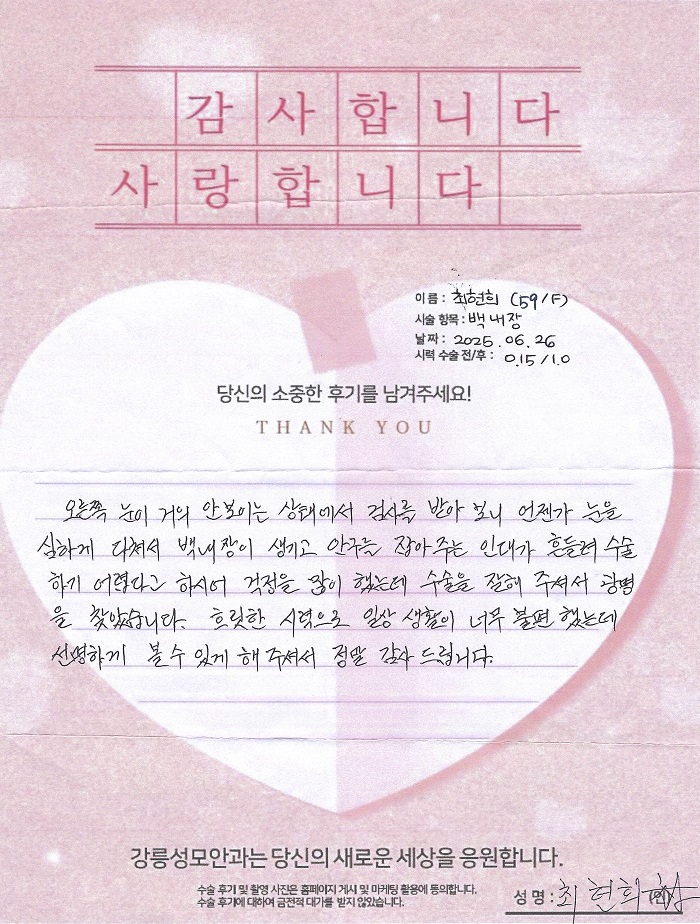 감사합니다
사랑합니다
이름 : 최현희 (59/F)
시술 항목 : 백내장
날짜 : 2025.06.26
시력 수술 전/후 : 0.15/1.0
당신의 소중한 후기를 남겨주세요!
THANK YOU
오른쪽 눈이 거의 안보이는 상태에서 검사를 받아 보니 언젠가 눈을
심하게 다쳐서 백내장이 생기고 안구를 잡아주는 인대가 흔들려 수술
하기 어렵다고 하시어 걱정을 많이 했는데 수술을 잘해 주셔서 광명
을 찾았습니다. 흐릿한 시력으로 일상 생활이 너무 불편 했는데
선명하게 볼 수 있게 해 주셔서 정말 감사 드립니다.
강릉성모안과는 당신의 새로운 세상을 응원합니다.
수술 후기 및 촬영 사진은 홈페이지 게시 및 마케팅 활용에 동의합니다.
수술 후기에 대하여 금전적 대가를 받지 않았습니다.
성명 : 최현희 (인)